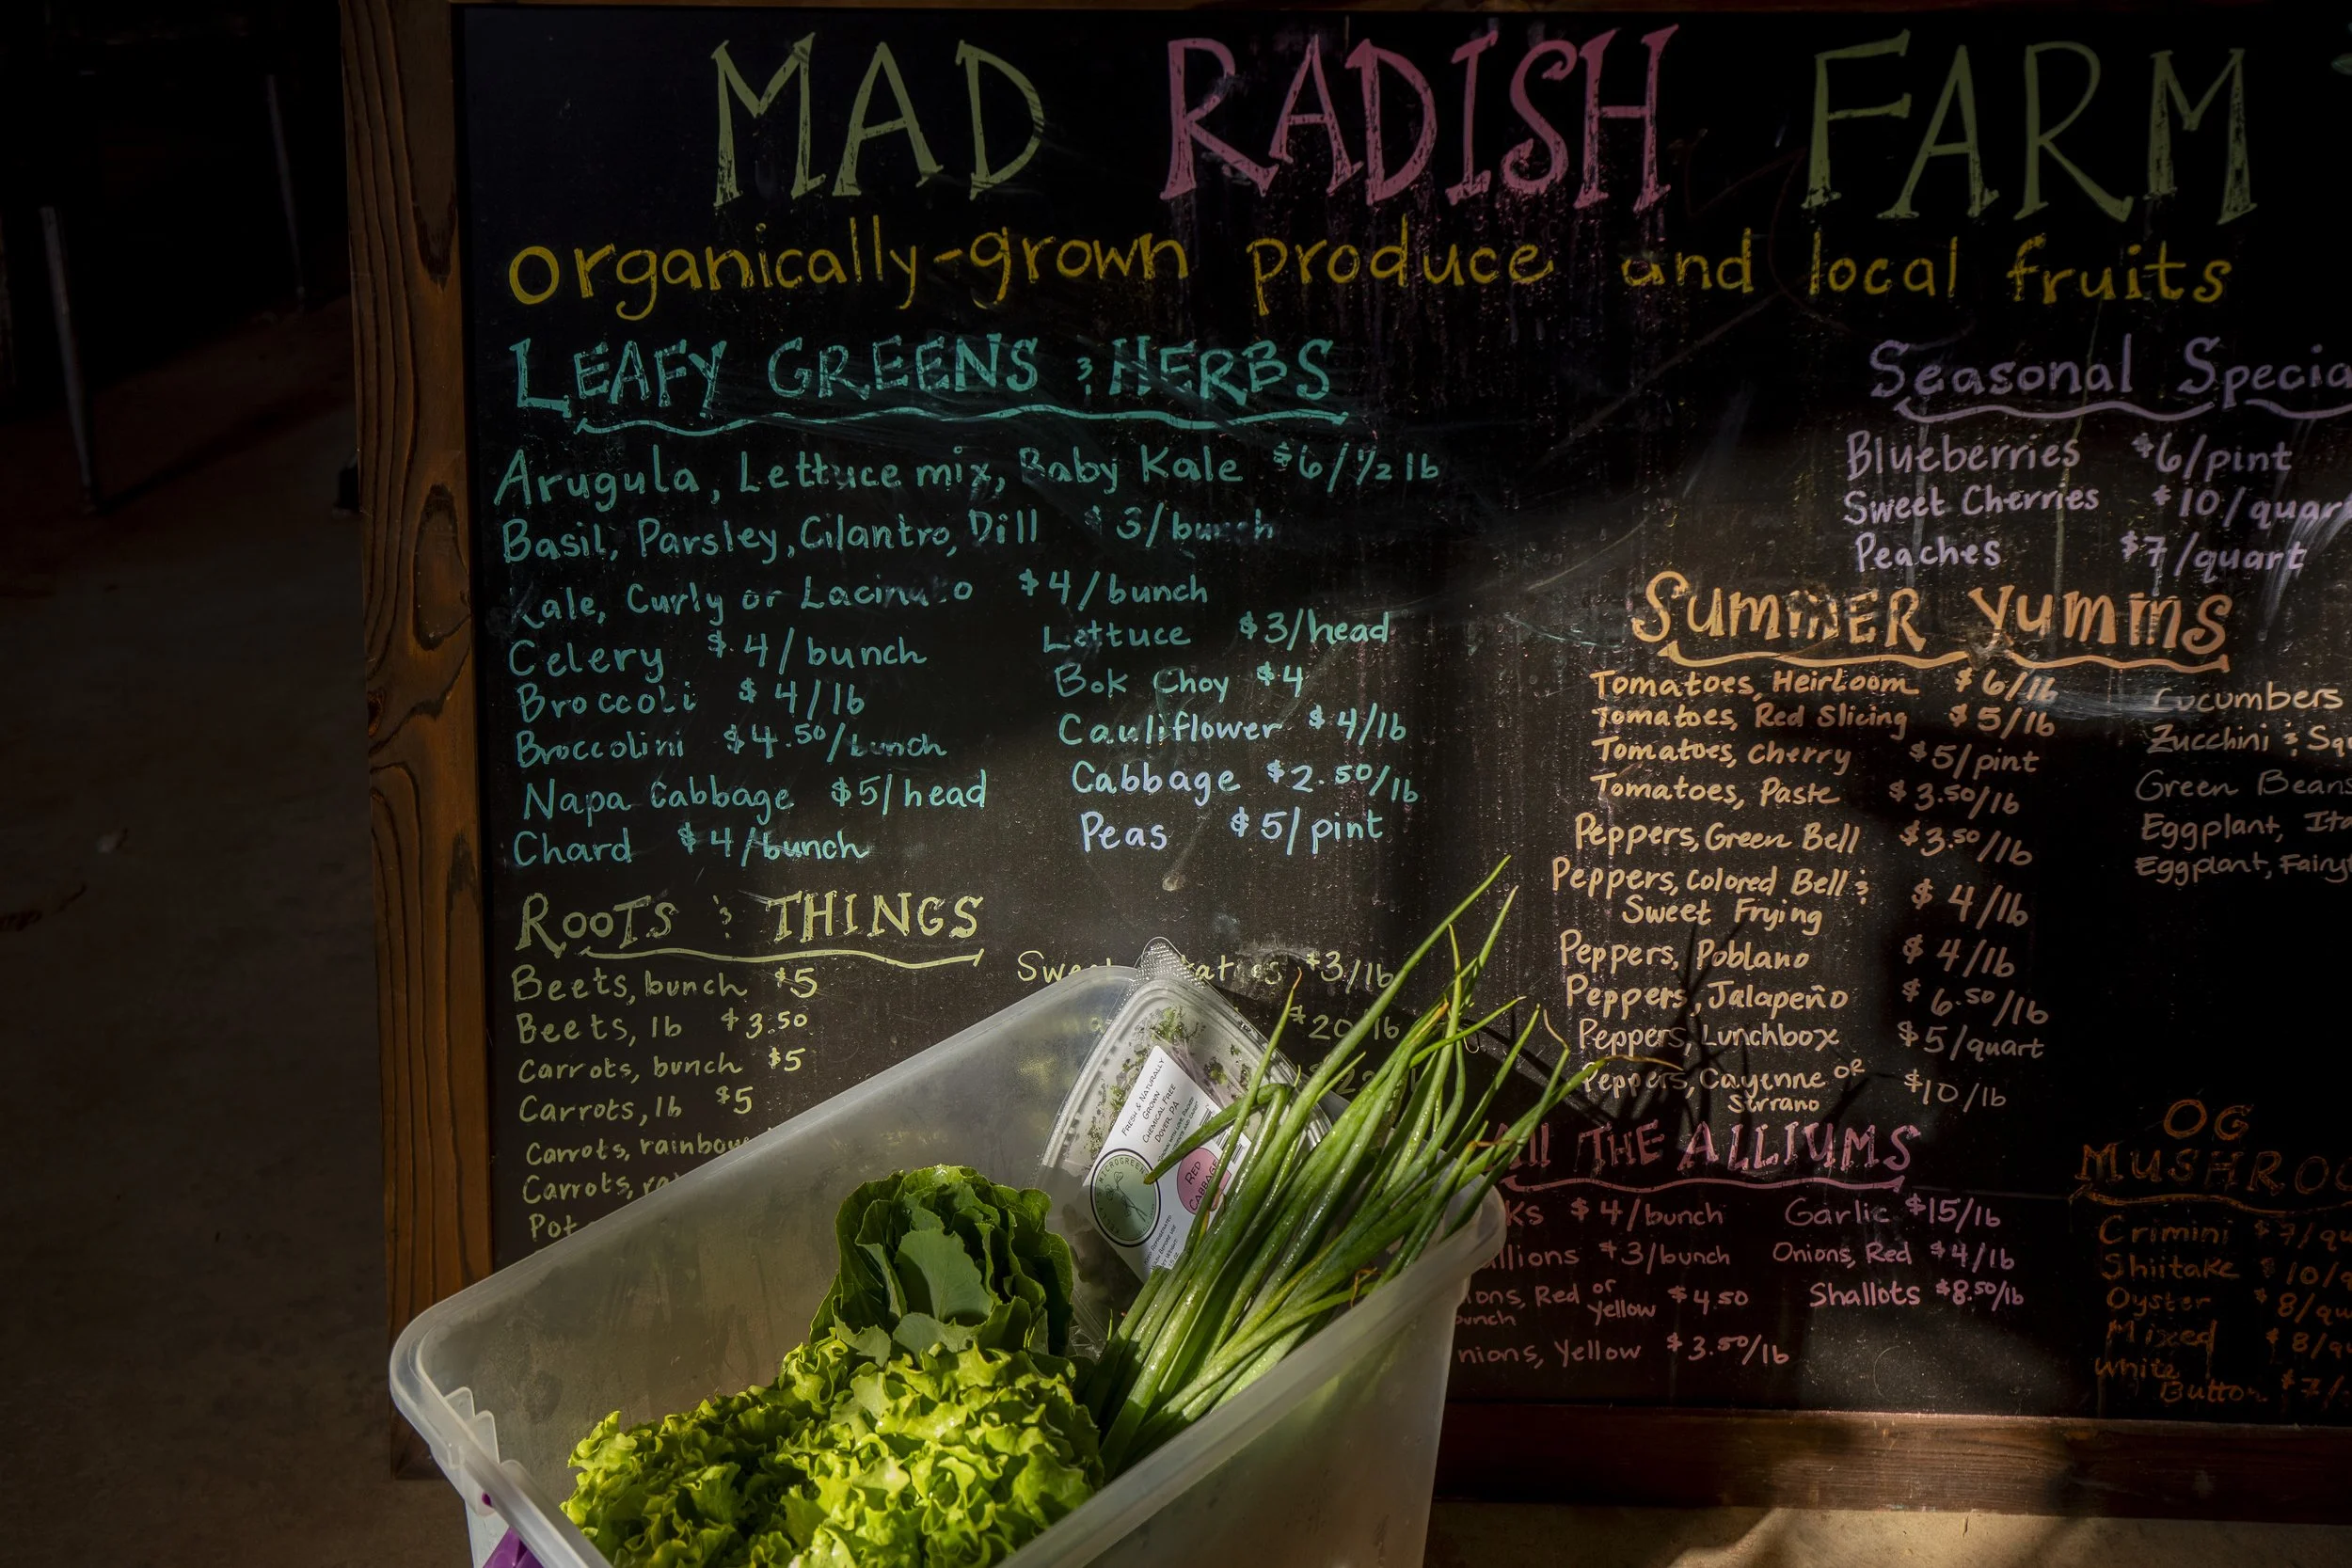 MAD RADISH FARM
Organically-grown produce and local fruits
LEAFY GREENS & HERBS
Arugula, Lettuce mix, Baby Kale $6/1/2 lb
Basil, Parsley, Cilantro, Dill $3/bunch
Kale, Curly or Lacinato $4/bunch
Celery $4/bunch
Broccoli $4/lb
Broccolini $4.50/bunch
Napa Cabbage $5/head
Chard $4/bunch
Lettuce $3/head
Bok Choy $4
Cauliflower $4/lb
Cabbage $2.50/lb
Peas $5/pint
ROOTS & THINGS
Beets, bunch $5
Beets, lb $3.50
Carrots, bunch $5
Carrots, lb $5
Carrots, rainbow
Carrots, ra
Pot
$3/lb
$20/lb
Seasonal Specia
Blueberries $6/pint
Sweet Cherries $10/quar
Peaches $7/quart
SUMMER YUMMS
Tomatoes, Heirloom $6/lb
Tomatoes, Red Slicing $5/lb
Tomatoes, Cherry $5/pint
Tomatoes, Paste $3.50/lb
Peppers, Green Bell $3.50/lb
Peppers, Colored Bell & $4/lb
Sweet Frying
Peppers, Poblano $4/lb
Peppers, Jalapeño $6.50/lb
Peppers, Lunchbox $5/quart
Peppers, Cayenne or $10/lb
Serrano
Cucumbers
Zucchini & Squ
Green Beans
Eggplant, Ita
Eggplant, Fairy
All THE ALLIUMS
ks $4/bunch
allions $3/bunch
ions, Red or Yellow $4.50
bunch
nions, Yellow $3.50/lb
Garlic $15/lb
Onions, Red $4/lb
Shallots $8.50/lb
OG
MUSHROO
Crimini $7/qu
Shiitake $10/q
Oyster $8/qu
Mixed $8/qu
White
Button $7/
FRESH & NATURALLY
GROWN
CHEMICAL FREE
DOVER, PA
RED
CABBAGE